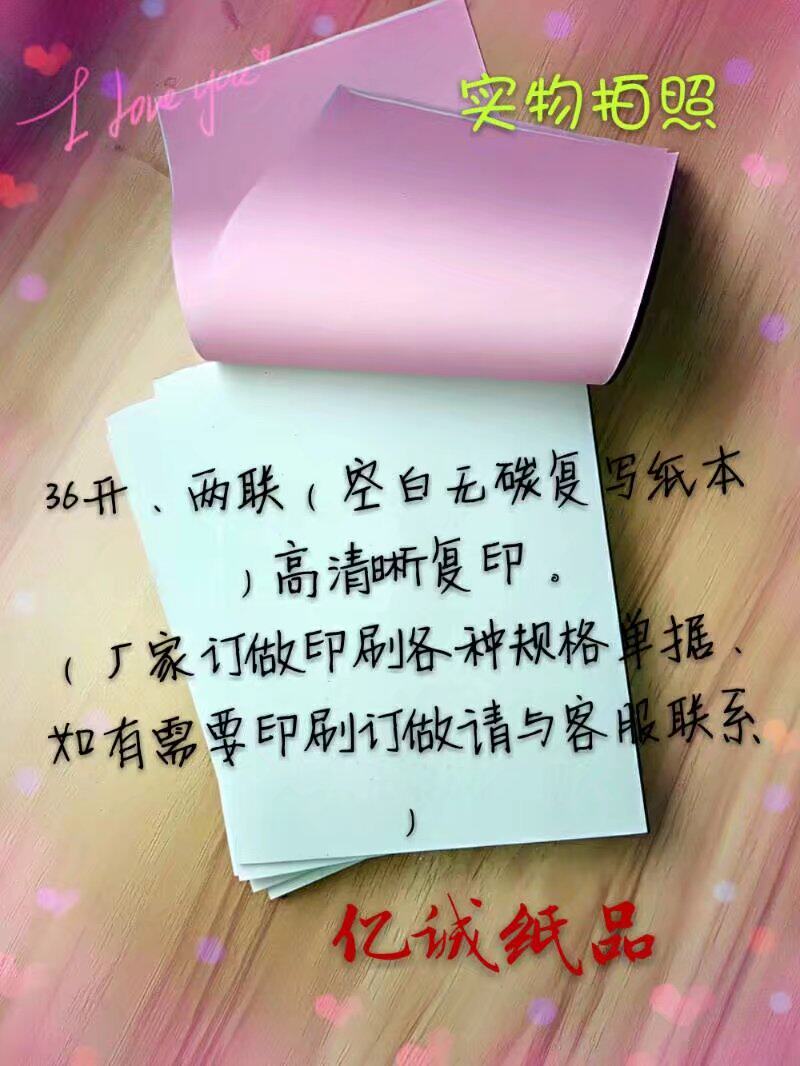 I love you
实物拍照
36开、两联(空白无碳复写纸本
)高清晰复印。
(厂家订做印刷各种规格单据、
如有需要印刷订做请与客服联系
)
亿诚纸品